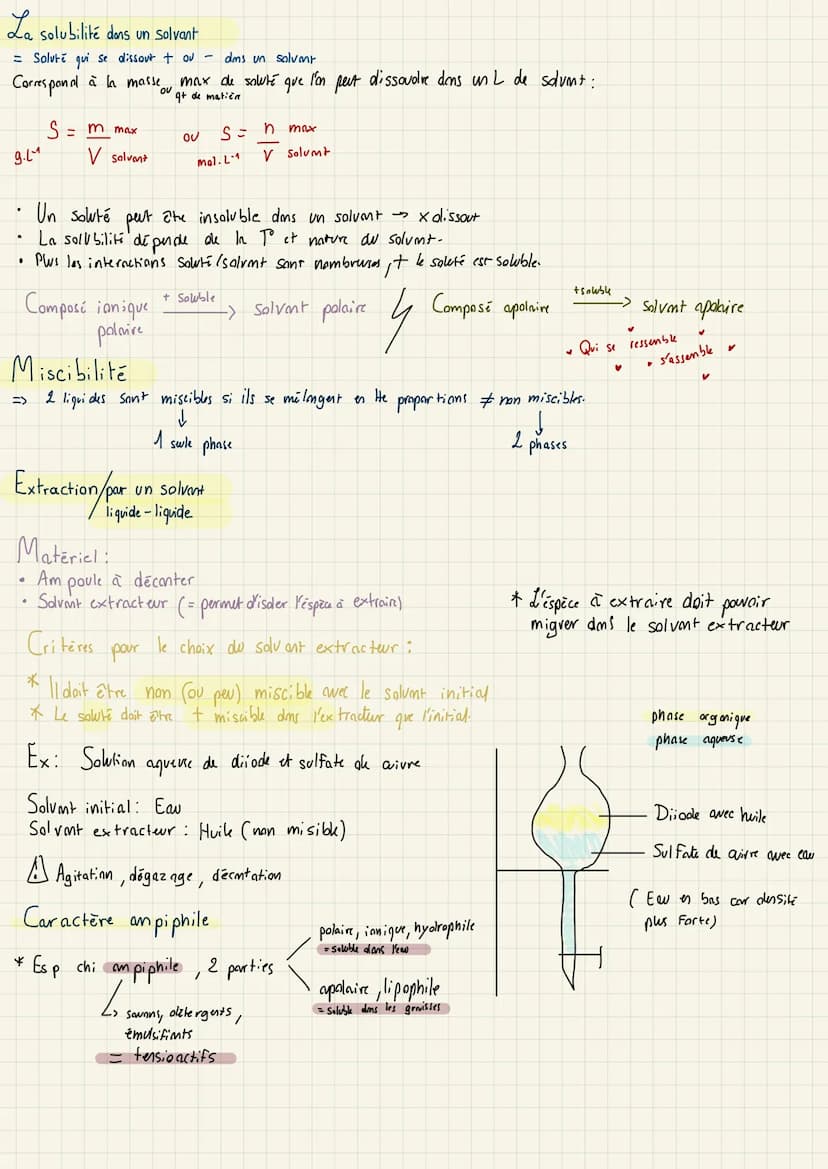 La solubilité dans un solvant
= Soluté qui se dissout + ou - dans un solvant
Correspond à la masse ou qt de matière max de soluté que l'on peut dissoudre dans un L de solvant :
S = m max / V solvant ou S = n max / V solvant
g.L⁻¹ mol.L⁻¹
• Un soluté peut être insoluble dans un solvant → x dissout
• La solubilité dépende de la T° et nature du solvant.
• Plus les interactions soluté/solvant sont nombreuses, + le soluté est soluble.
Composé ionique polaire + soluble → solvant polaire
Composé apolaire + soluble → solvant apolaire
Qui se ressemble
s'assemble
Miscibilité
=> 2 liquides sont miscibles si ils se mélangent en tte proportions ≠ non miscibles.
↓ ↓
1 seule phase 2 phases
Extraction/par un solvant
liquide-liquide
Matériel :
• Ampoule à décanter
• Solvant extracteur (= permet d'isoler l'espèce à extraire)
* L'espèce à extraire doit pouvoir
migrer dans le solvant extracteur
Critères pour le choix du solvant extracteur :
* Il doit être non (ou peu) miscible avec le solvant initial
* Le soluté doit être + miscible dans l'extracteur que l'initial.
phase organique
phase aqueuse
Ex : Solution aqueuse de diiode et sulfate de cuivre
Solvant initial : Eau
Solvant extracteur : Huile (non misible)
⚠ Agitation, dégazage, décantation
Diiode avec huile
Sulfate de cuivre avec eau
( Eau en bas car densité
plus forte)
Caractère ampiphile
* Esp chi ampiphile, 2 parties
polaire, ionique, hydrophile
= soluble dans l'eau
apolaire, lipophile
= soluble dans les graisses
↳ savons, détergents,
émulsifiants
= tensioactifs